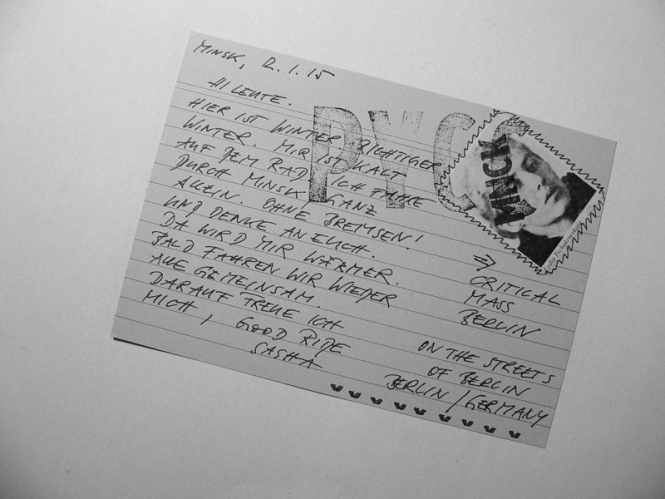 MINSK, 12.1.15
HI LEUTE.
HIER IST WINTER. RICHTIGER
WINTER. MIR IST KALT
AUF DEM RAD. ICH FAHRE
DURCH MINSK, GANZ
ALLEIN. OHNE BREMSEN!
UND DENKE AN EUCH.
DA WIRD MIR WÄRMER.
BALD FAHREN WIR WIEDER
ALLE GEMEINSAM.
DARAUF FREUE ICH
MICH, GOOD RIDE
SASHA
РУС
МИНСК
⇒ CRITICAL
MASS
BERLIN
ON THE STREETS
OF BERLIN
BERLIN / GERMANY